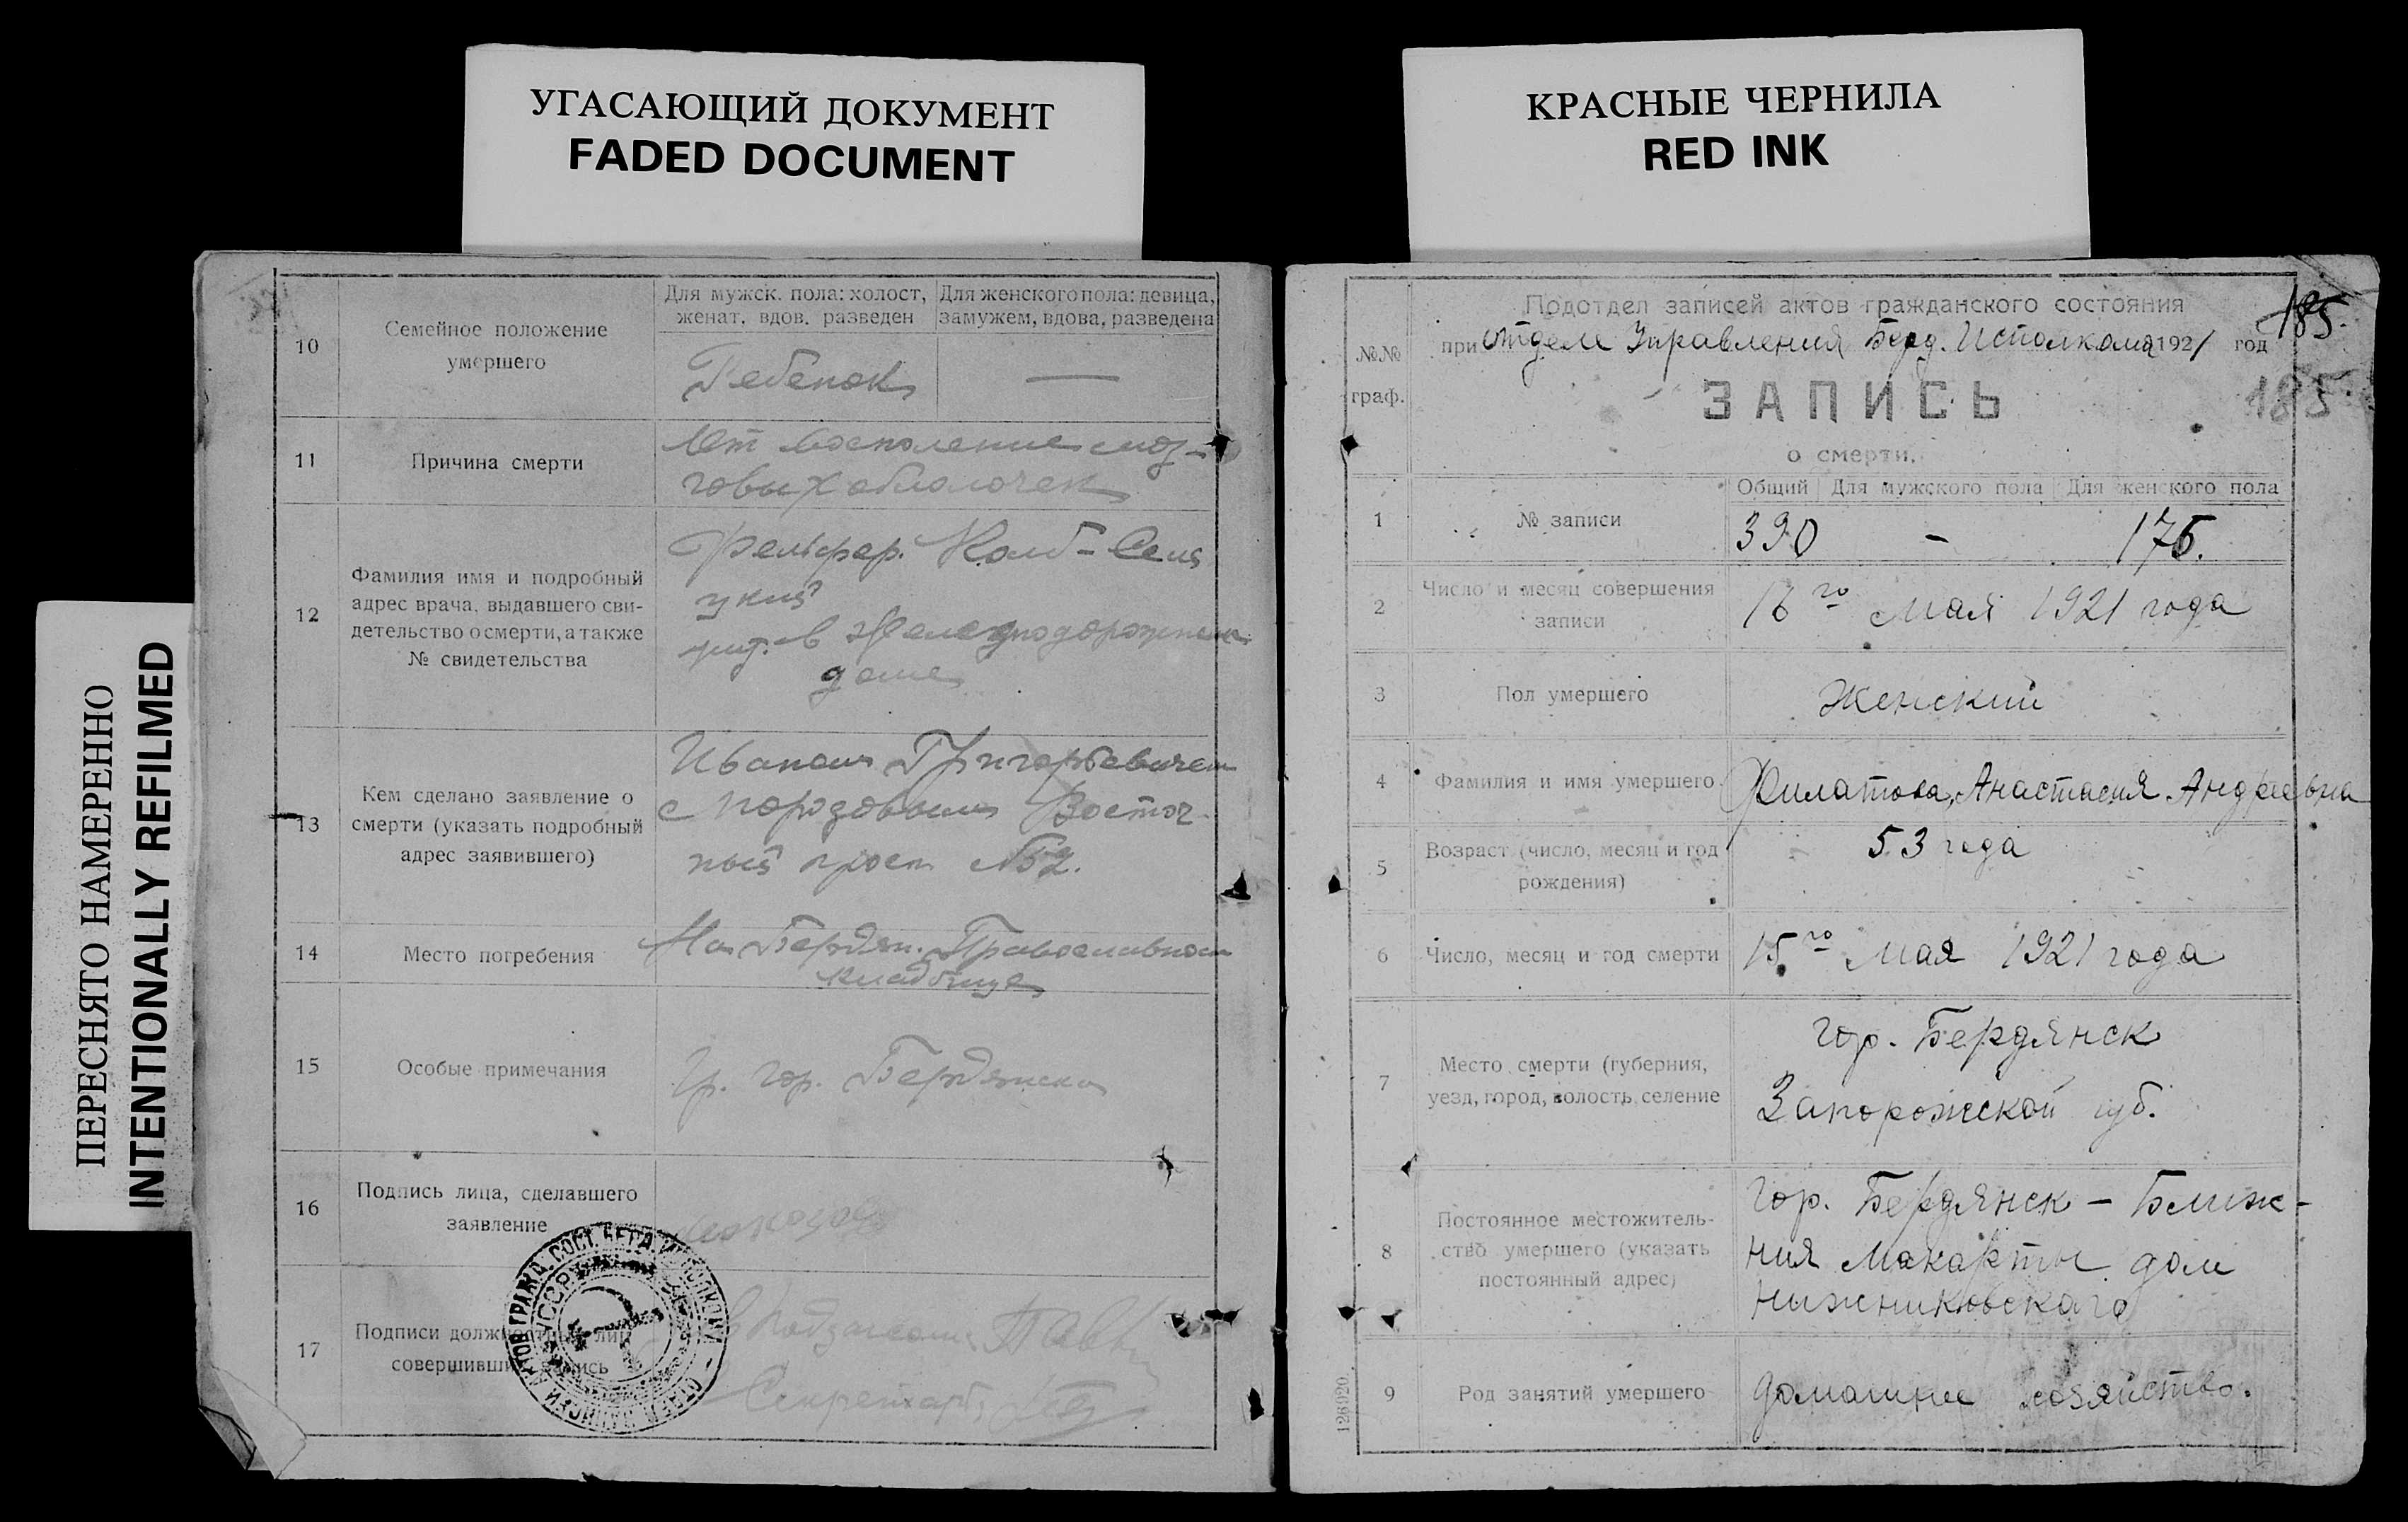 УГАСАЮЩИЙ ДОКУМЕНТ
FADED DOCUMENT
КРАСНЫЕ ЧЕРНИЛА
RED INK
ПЕРЕСНЯТО НАМЕРЕННО
INTENTIONALLY REFILMED
10
Семейное положение
умершего
Для мужск. пола: холост,
женат, вдов, разведен
Для женского пола: девица,
замужем, вдова, разведена
Ребенок
—
11
Причина смерти
От воспаление моз-
говых оболочек
12
Фамилия имя и подробный
адрес врача, выдавшего сви-
детельство о смерти, а также
№ свидетельства
Фельдшер.
в Железнодорожном
доме
13
Кем сделано заявление о
смерти (указать подробный
адрес заявившего)
Иваном Григорьевичем
Восточ-
ный просп №52.
14
Место погребения
На Бердян. Православном
кладбище
15
Особые примечания
Гр. гор. Бердянска
16
Подпись лица, сделавшего
заявление
17
Подписи должностных лиц
совершивших запись
Секретарь
185.
Подотдел записей актов гражданского состояния
при Отделе Управления Берд. Исполкома 1921 год
185
№№
граф.
ЗАПИСЬ
о смерти.
Общий
Для мужского пола
Для женского пола
1
№ записи
390
-
176.
2
Число и месяц совершения
записи
16го Мая 1921 года
3
Пол умершего
Женский
4
Фамилия и имя умершего
Филатова, Анастасия Андреевна
5
Возраст (число, месяц и год
рождения)
53 года
6
Число, месяц и год смерти
15го Мая 1921 года
7
Место смерти (губерния,
уезд, город, волость, селение
гор. Бердянск
Запорожской губ.
8
Постоянное местожитель-
ство умершего (указать
постоянный адрес)
гор. Бердянск - Ближ-
ния Макорты дом
Нижниковскаго
9
Род занятий умершего
домашнее хозяйство.
126920